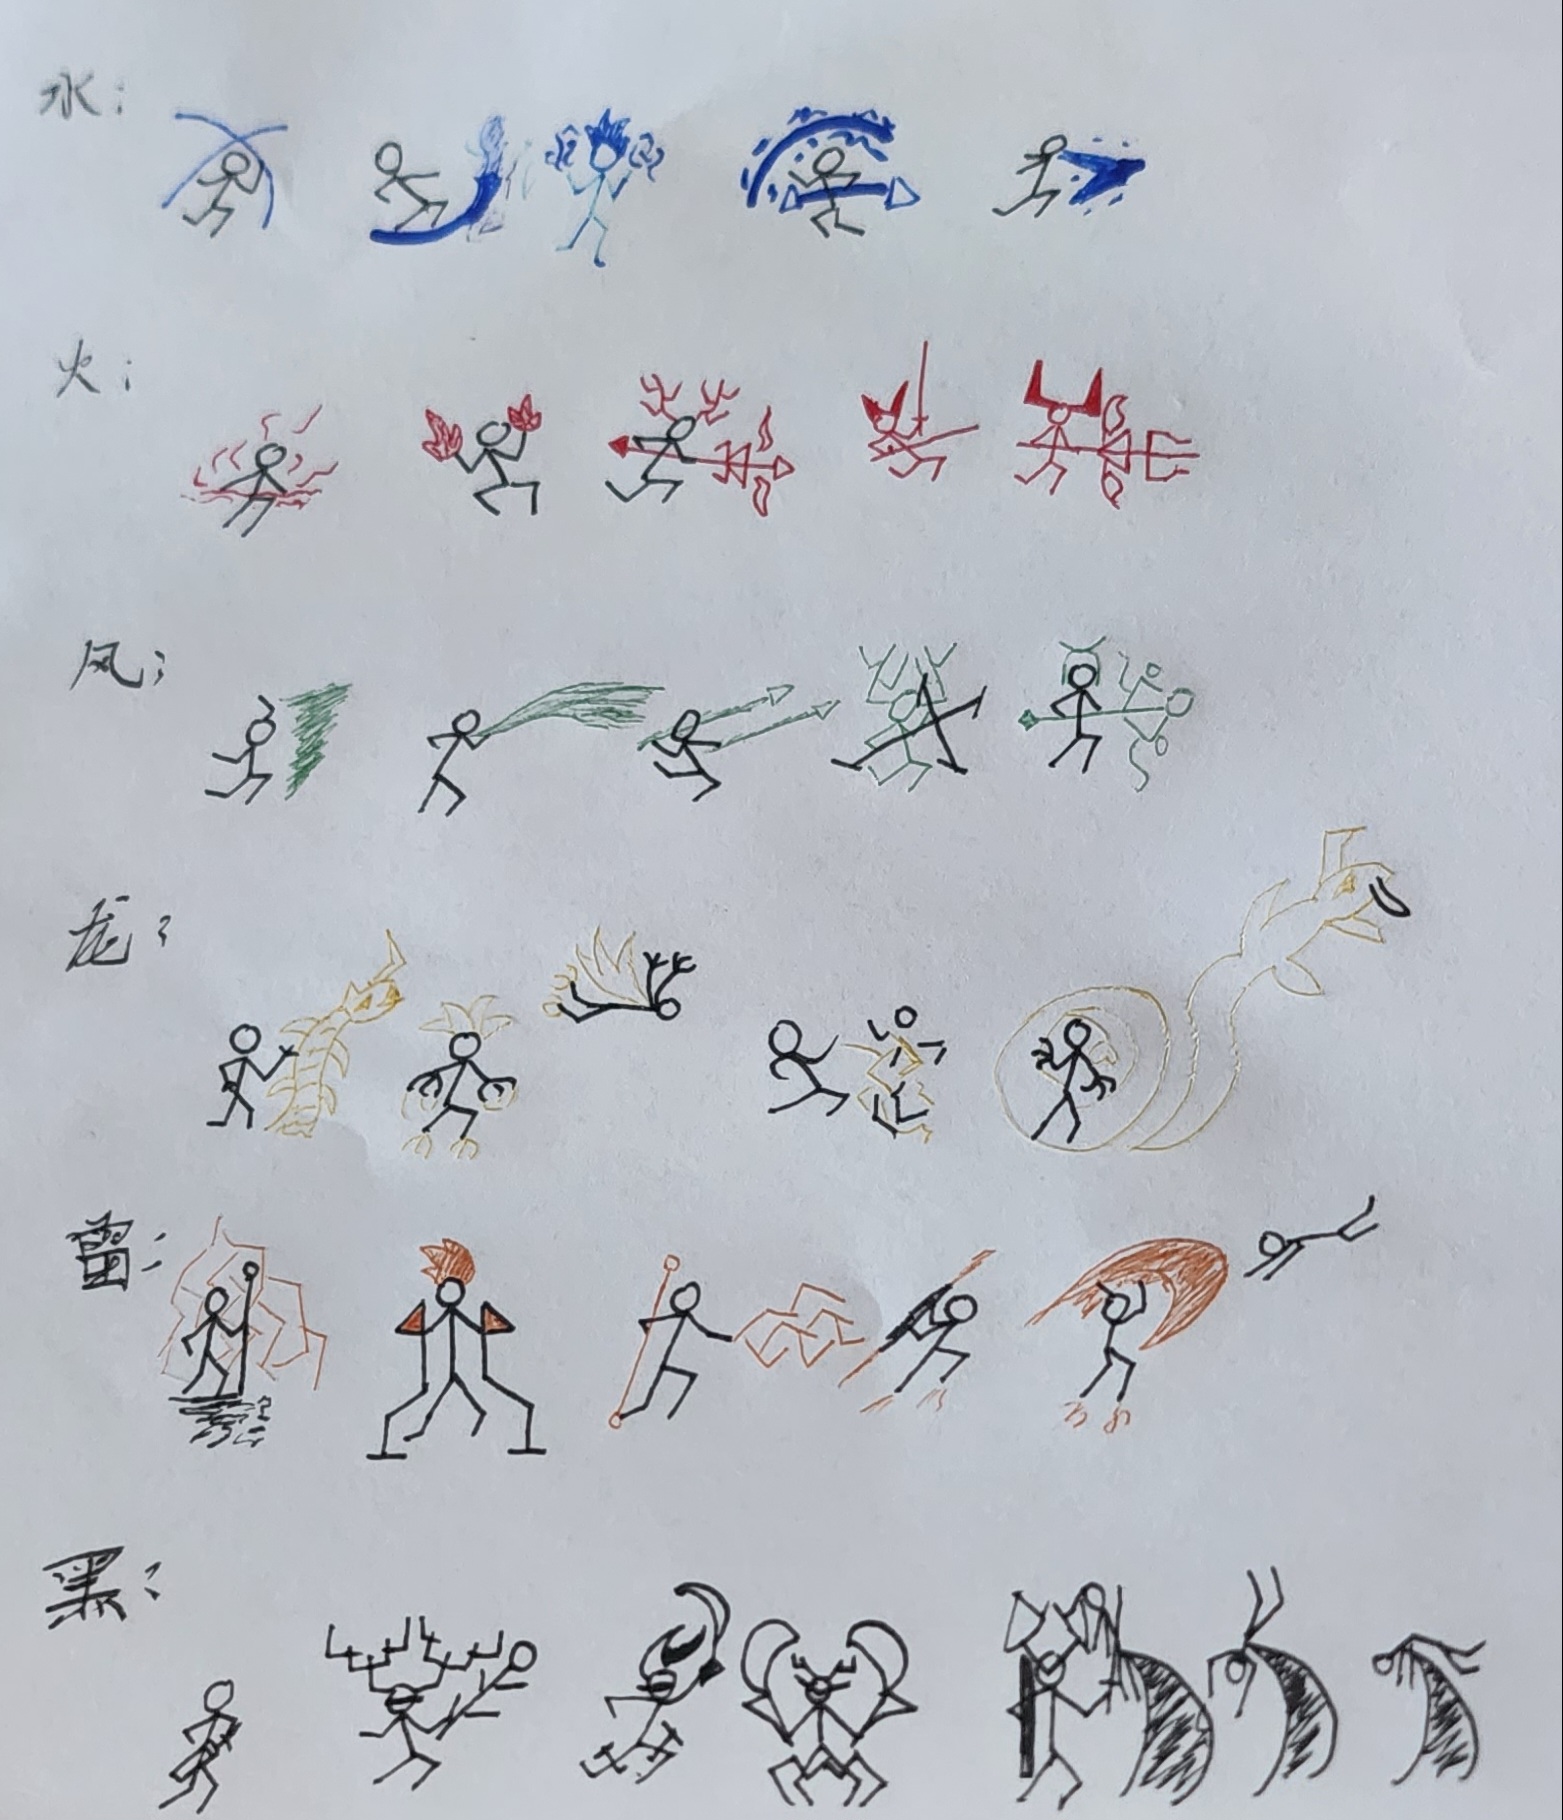 水：
火：
风：
龙：
雷：
黑：